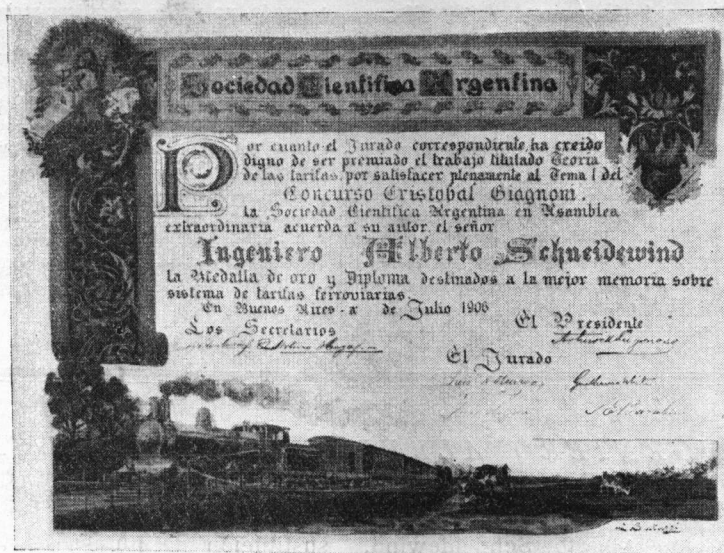 Sociedad Cientifica Argentina
Por cuanto el Jurado correspondiente, ha creido
digno de ser premiado el trabajo titulado Teoria
de las tarifas, por satisfacer plenamente al Tema I del
Concurso Cristobal Giagnoni.
la Sociedad Cientifica Argentina en Asamblea
extraordinaria acuerda a su autor, el señor
Ingeniero Alberto Schneidewind
la Medalla de oro y Diploma destinados a la mejor memoria sobre
sistema de tarifas ferroviarias
En Buenos Aires - a de Julio 1906
Los Secretarios
El Presidente
El Jurado